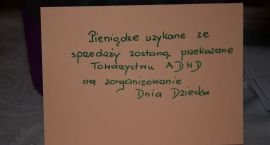 Pieniądze uzykane ze
sprzedaży zostaną przekazane
Towarzystwu ADHD
na zorganizowanie
Dnia Dziecka